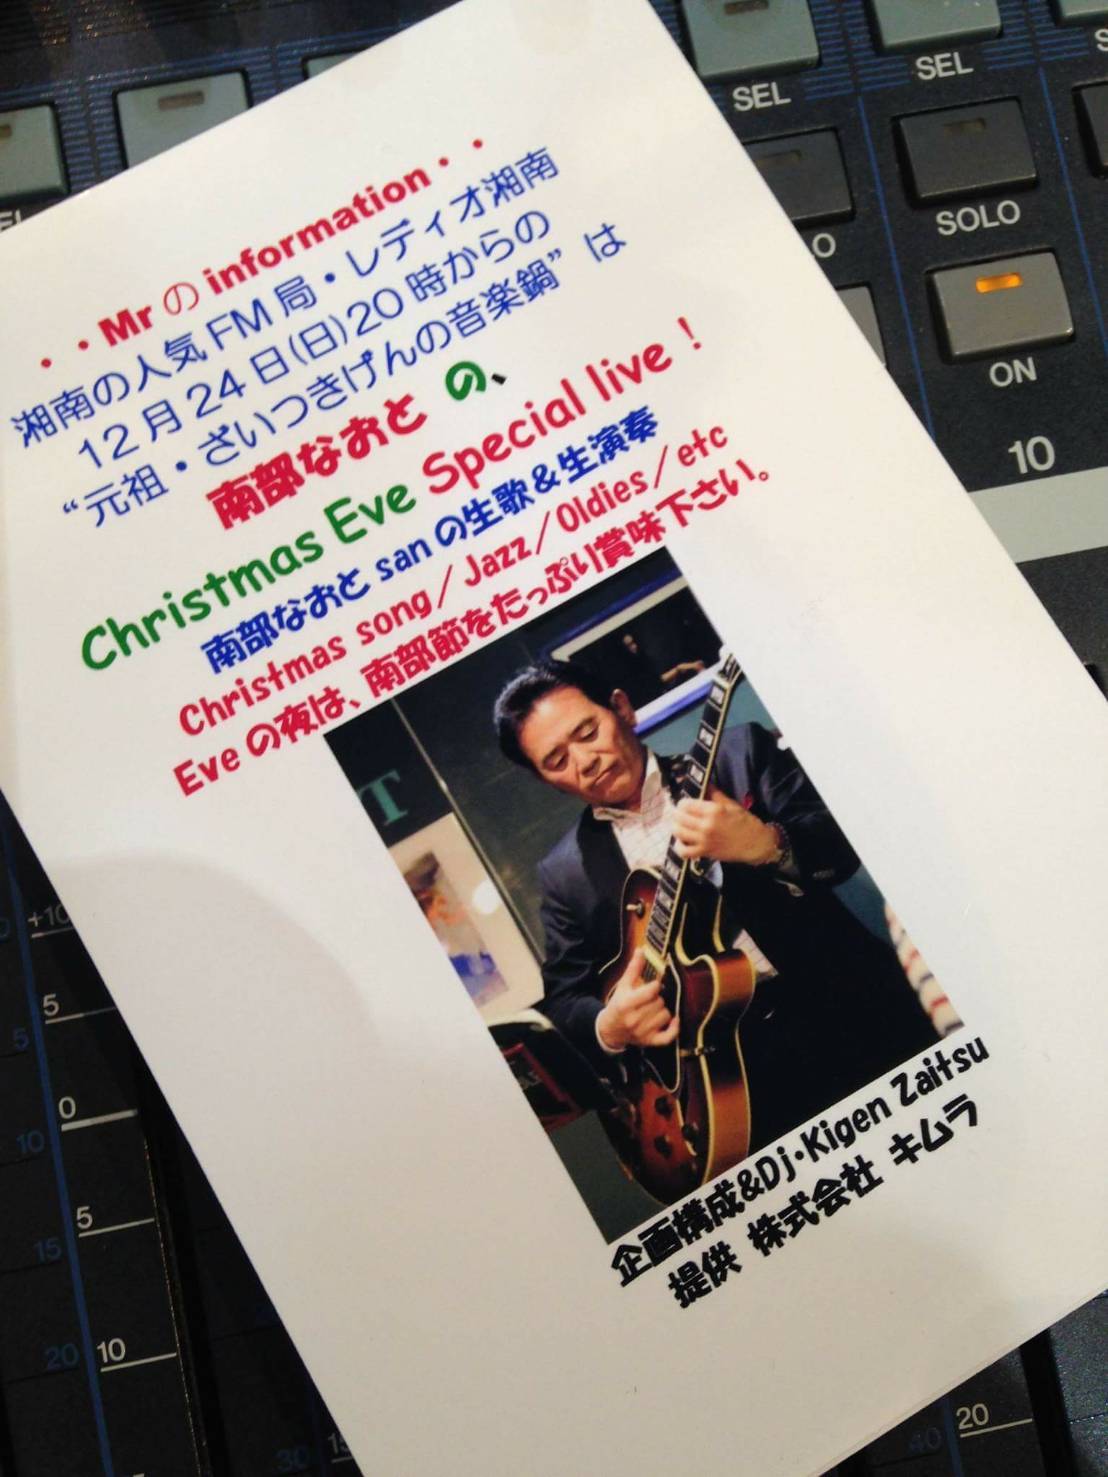 ・・Mr の information・・
湘南の人気 FM 局・レディオ湘南
12 月 24 日(日)20 時からの
“元祖・ざいつきげんの音楽鍋” は
南部なおと の、
Christmas Eve Special live！
南部なおと san の生歌＆生演奏
Christmas song／Jazz／Oldies／etc
Eve の夜は、南部節をたっぷり賞味下さい。
T
企画構成&Dj・Kigen Zaitsu
提供 株式会社 キムラ
SEL
SEL
SOLO
ON
10
+10
5
5
0
10
5
15
20
10
30
15
40
20